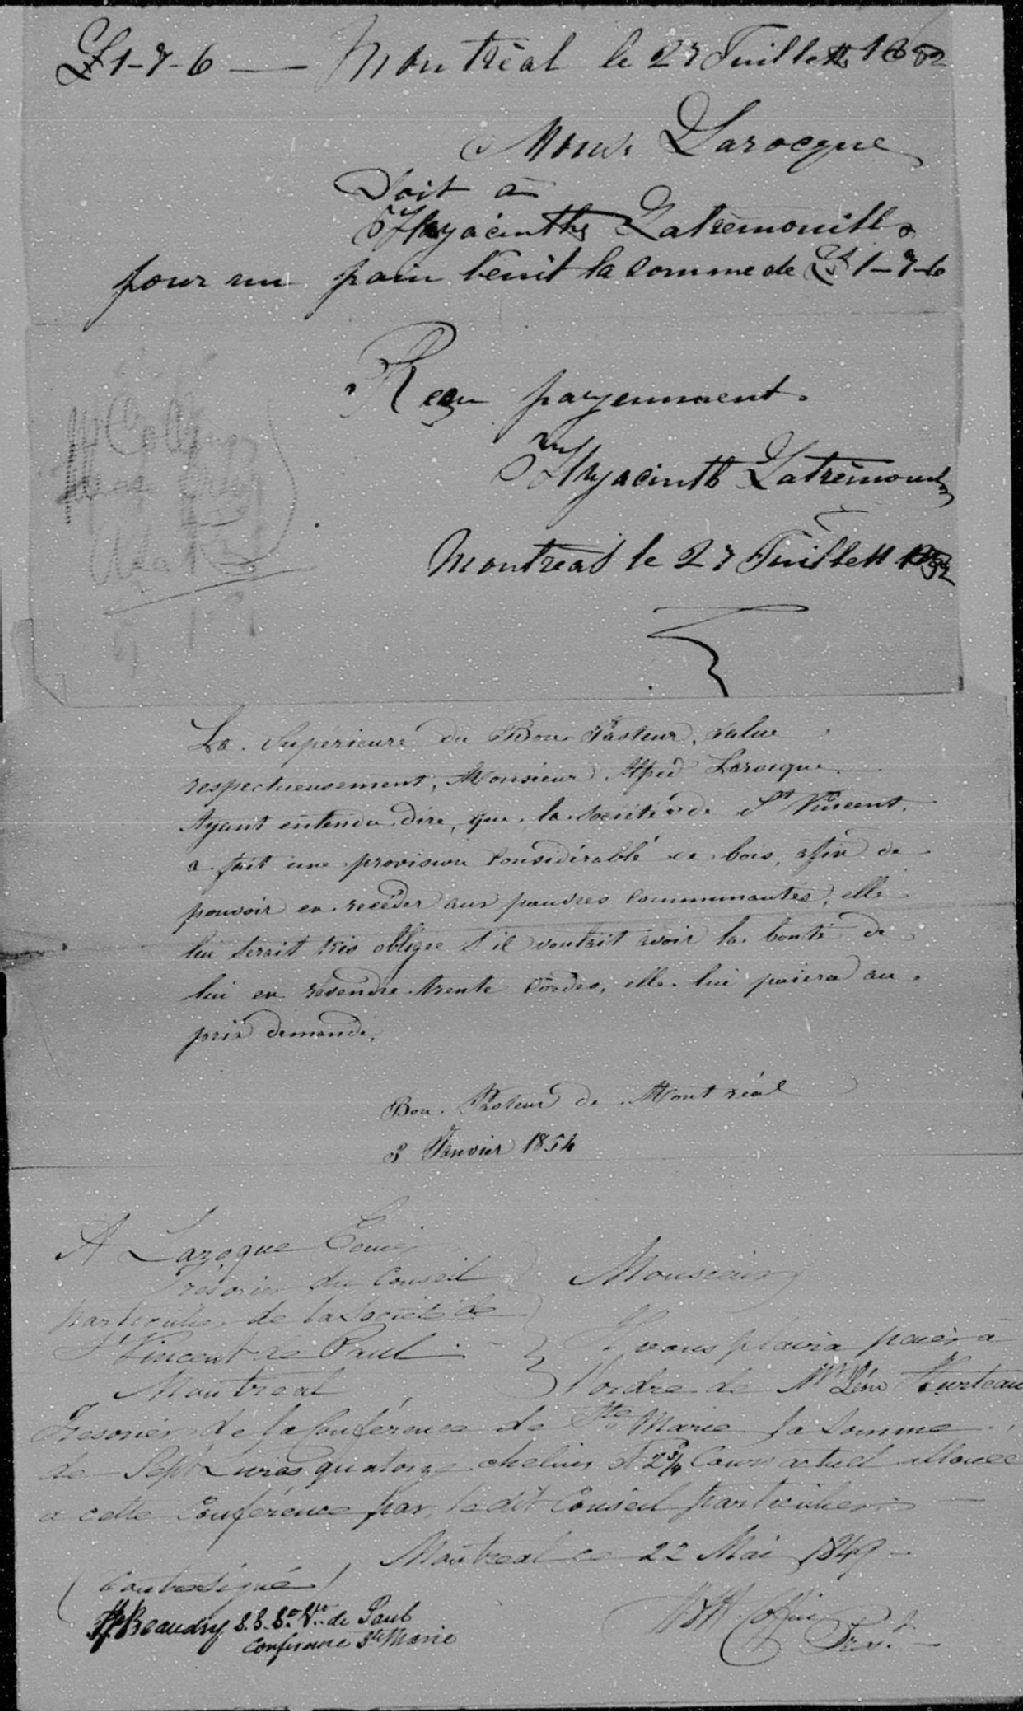 £1-7-6 — Montréal le 27 Juillett 1852
Monsr Larocque
Doit à
Hyacinthe Latrémouille
pour un pain bénit la somme de £1-7-6
Reçu payenment.
Hyacinth Latrémouille
Montréal le 27 Juillett 1852
La Supérieure du Bon Pasteur, salue
respectueusement, Monsieur Alfred Larocque.
Ayant entendu dire, que la Société de St Vincent,
a fait une provision considérable de bois, afin de
pouvoir en recéder aux pauvres communautés, elle
lui serait très obligée s'il voudrait avoir la bonté de
lui en revendre trente cordes, elle lui paiera au
prix demandé.
Bon Pasteur de Montréal
8 Janvier 1854
A Laroque
Trésorier du Conseil
particulier de la Société de
St Vincent de Paul
Montreal
Monsieur
Il vous plaira payer à
l'ordre de Mr Hurteau
Tresorier de la Conférence de Ste Marie la somme
de Sept Livres quatorze chelins et 2¾ Cours actuel allouée
a cette Conférence par ledit Conseil particulier —
Montreal ce 22 Mai 1849 —
(Contresigné)
Beaudry S.S. St Vt de Paul
Conférence Ste Marie
Coffin
Prest.